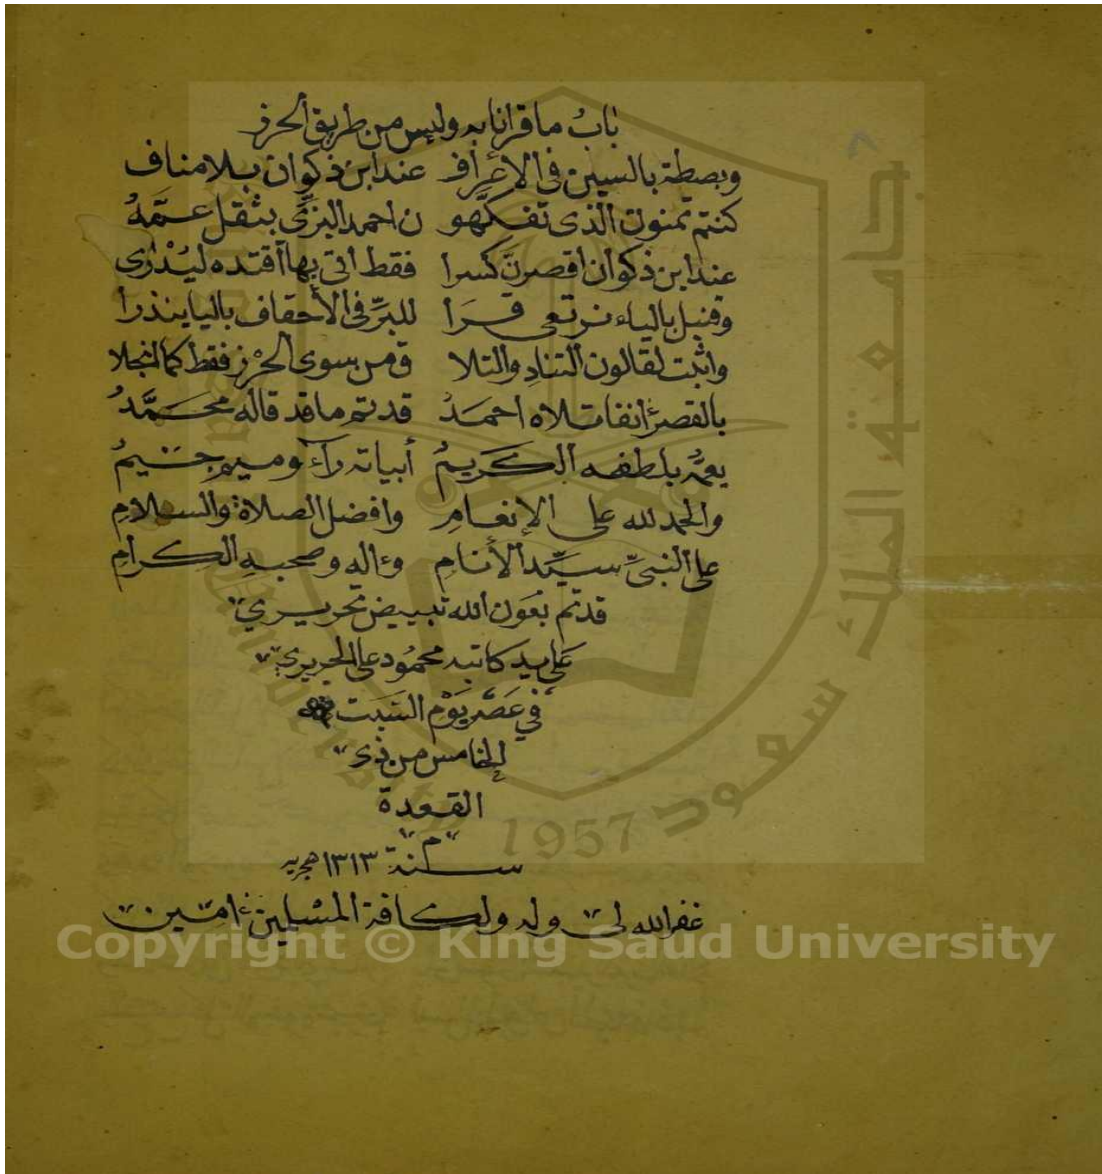 باب ما قرانا به وليس من طريق الحرز
وبصطة بالسين في الاعراف عند ابن ذكوان بلا مناف
كنتم تمنون الذى تفكهو ن احمد البزى بثقل عمّه
عند ابن ذكوان اقصرنّ كسرا فقط اتى بها اقتده ليُدْرى
وقنبل بالياء نرتعى قرا للبزّ فى الأحقاف باليا ينذرا
واثبت لقالون التناد والتلا ق من سوى الحرْز فقط كما انجلا
بالقصر ءانفا تلاه احمدُ قد تم ما قد قاله محمّدُ
يعمّه بلطفه الكريمُ أبياته رآء وميم جيمُ
والحمد لله على الإنعام وافضل الصلاة والسلامِ
على النبىّ سيّد الأنامِ وءاله وصحبهِ الكرامِ
قد تم بعَون الله تبييض تحريري
على يد كاتبه محمُود على الحريري
في عَصْر يَوْم السَبَت
الخامس من ذى
القعدة
م
سنة ١٣١٣ هجريه
غفر الله لى وله ولكافة المسْلمين ءامّين
جامعة الملك سعود
King Saud University
1957
Copyright © King Saud University